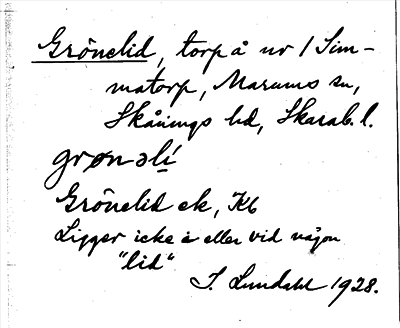 Grönelid, torp å nr 1 Sim-
matorp, Marums sn,
Skånings hd, Skarab. l.
grønəlí
Grönelid ek, Kb
Ligger icke i eller vid någon
"lid"
I. Lundahl 1928.